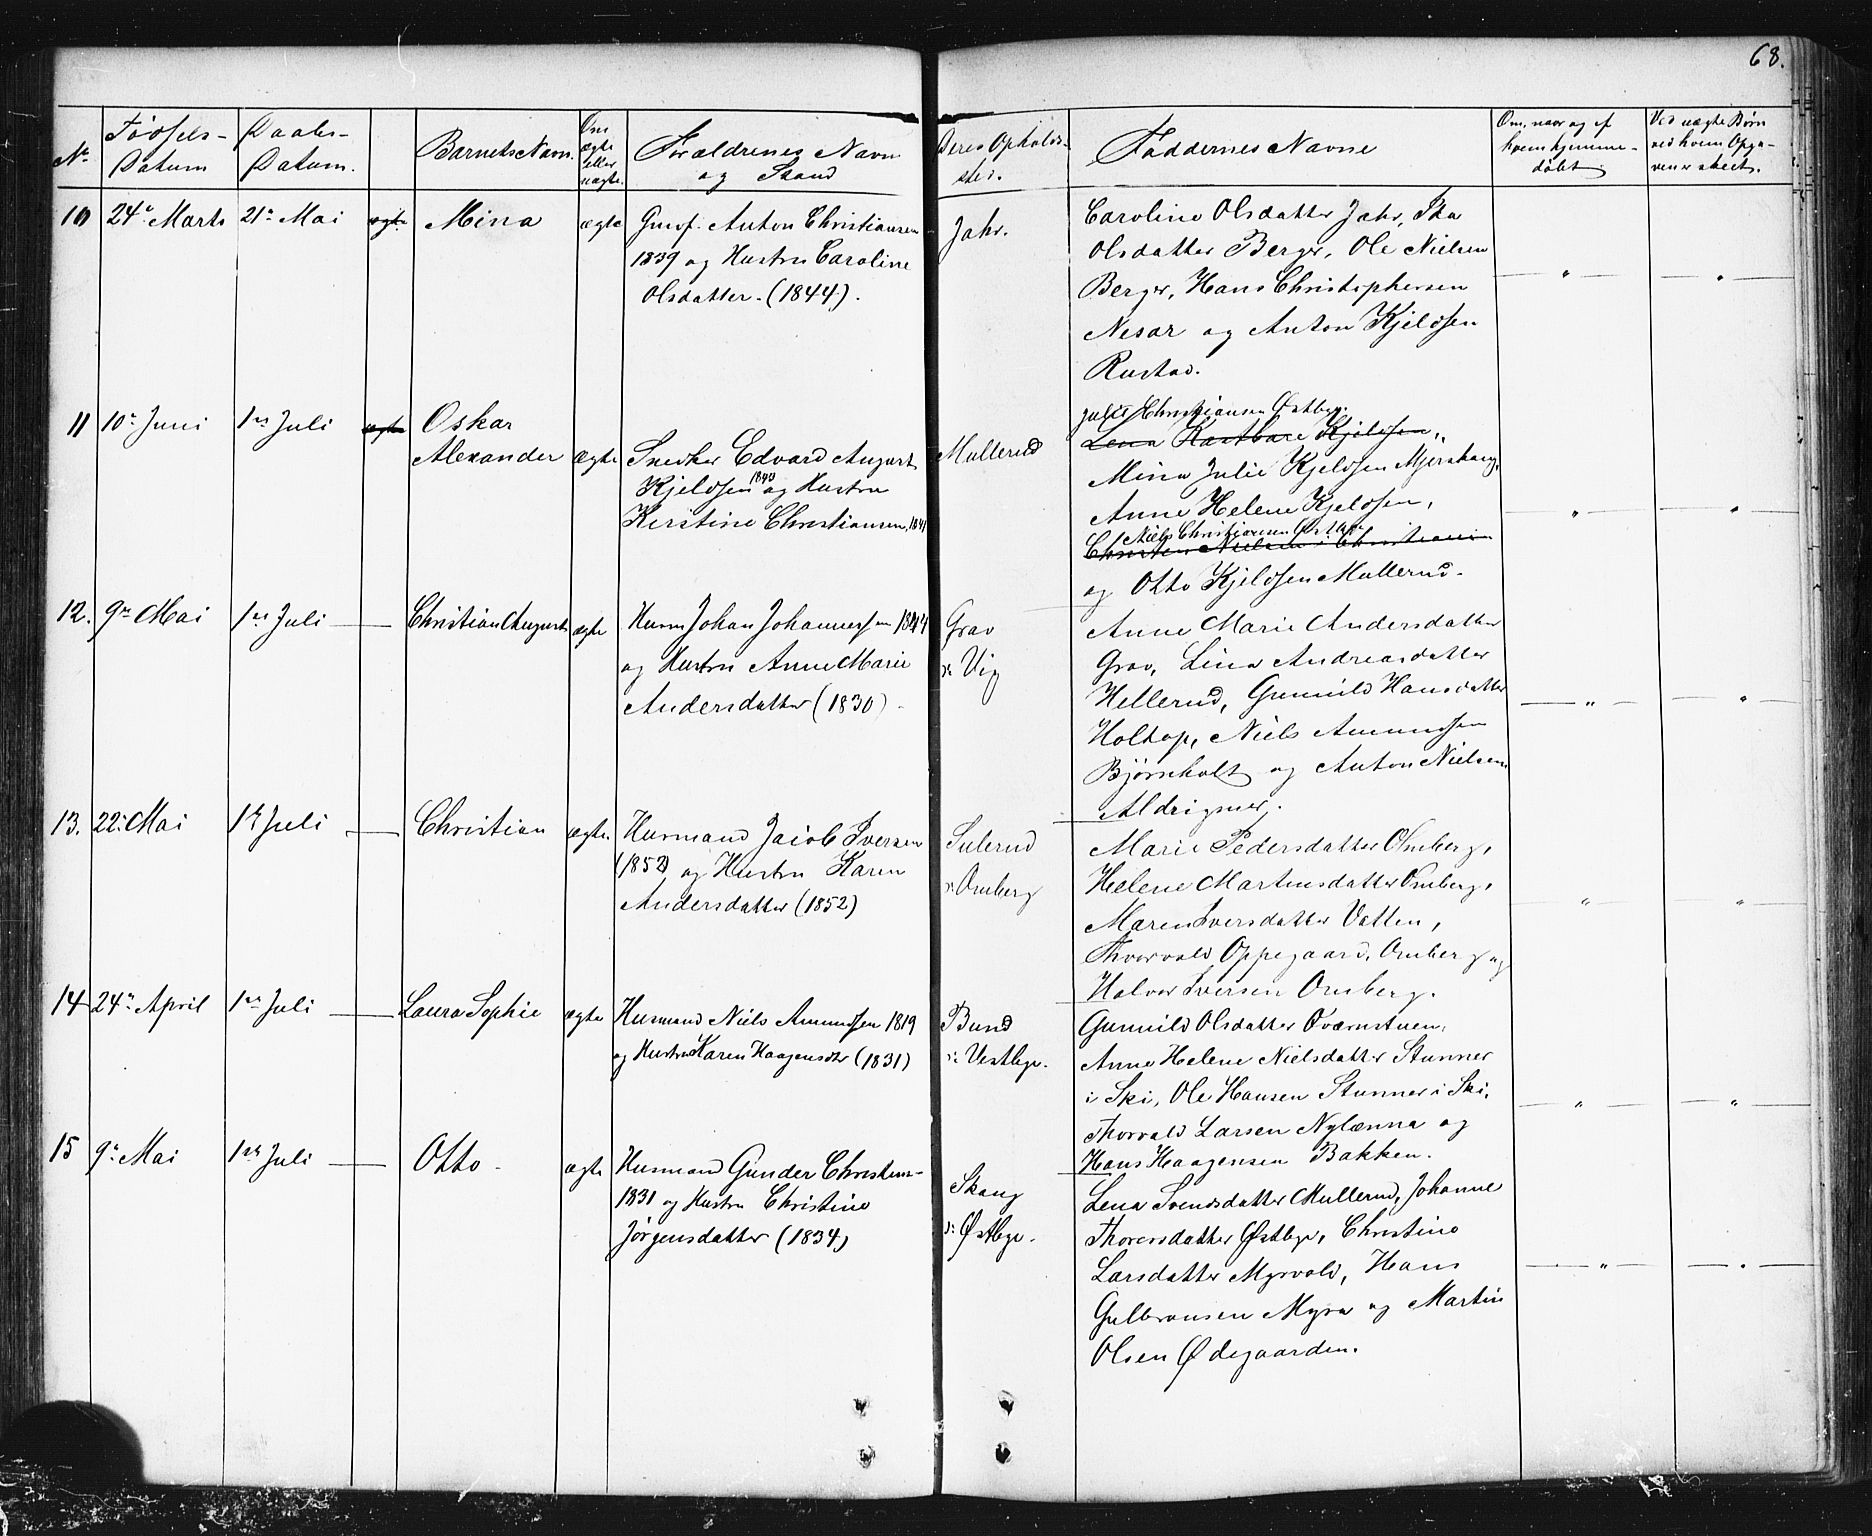 68.
No. Fødsels-Datum Daabs-Datum. Barnets Navn. Om ægte eller uægte. Forældrenes Navn og Stand Deres Opholds-sted. Faddernes Navne Om, naar og af hvem hjemme-døbt Ved uægte Børn ved hvem Opga-ven er skeet.
10 24de Marts 21de Mai ægte Mina ægte Anton Christiansen Jahr. Caroline Olsdatter Jahr,
1839 og Hustru Caroline Olsdatter Berger, Ole Nielsen
Olsdatter. (1844). Berger, Hans Christophersen
Nesar og Anton Kjeldsen
Rustad.
11 10de Juni 1ste Juli ægte Oskar Julie Christiansen Østbye.
Alexander ægte Snedker Edvard August Mullerud Lena Kjeldsen,
Kjeldsen 1843 og Hustru Mina Julie Kjeldsen
Kirstine Christiansen, 1841 Anne Helene Kjeldsen, " "
Niels Christiansen Østbye
Nielsen Christiania
og Otto Kjeldsen Mullerud.
12. 9de Mai 1ste Juli Christian August ægte Husm. Johan Johannessen 1844 Grav Anne Marie Andersdatter
og Hustru Anne Marie u: Vig Grav, Lina Andreasdatter
Andersdatter (1830) Hellerud, Gunnild Hansdatter " "
Holtop, Niels Amundsen
Bjørnholt og Anton Nielsen
Aldrigmer.
13. 22de Mai 1ste Juli Christian ægte. Husmand Jacob Iversen Sulerud Marie Pedersdatter Omberg,
(1852) og Hustru Karen u: Omberg Helene Martinsdatter Omberg,
Andersdatter (1852) Maren Iversdatter Vatten, " "
Thorvald Oppegaard, Omberg og
Halvor Iversen Omberg.
14 24de April 1ste Juli Laura Sophie ægte Husmand Niels Amundsen 1819 Bund Gunnild Olsdatter Qværnstuen,
og Hustru Karen Haagensdtr (1831) u: Vestbye. Anne Helene Nielsdatter Stunner
i Ski, Ole Hansen Stunner i Ski, " "
Thorvald Larsen Nylænna og
Hans Haagensen Bakken.
15 9de Mai 1ste Juli Otto ægte Husmand Gunder Christens- Skaug Lena Svendsdatter Mullerud, Johanne
1831 og Hustru Christine u: Østbye. Thoresdatter Østbye, Christine
Jørgensdatter (1834) Larsdatter Myrvold, Hans " "
Gulbransen Myra og Martin
Olsen Ødegaarden.